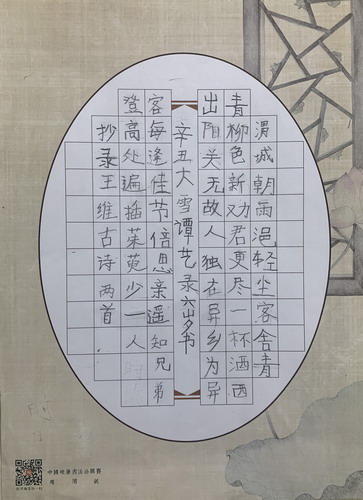 渭城朝雨浥轻尘客舍青
青柳色新劝君更尽一杯酒西
出阳关无故人独在异乡为异
辛丑大雪谭艺录书
客每逢佳节倍思亲遥知兄弟
登高处遍插茱萸少一人
抄录王维古诗两首.